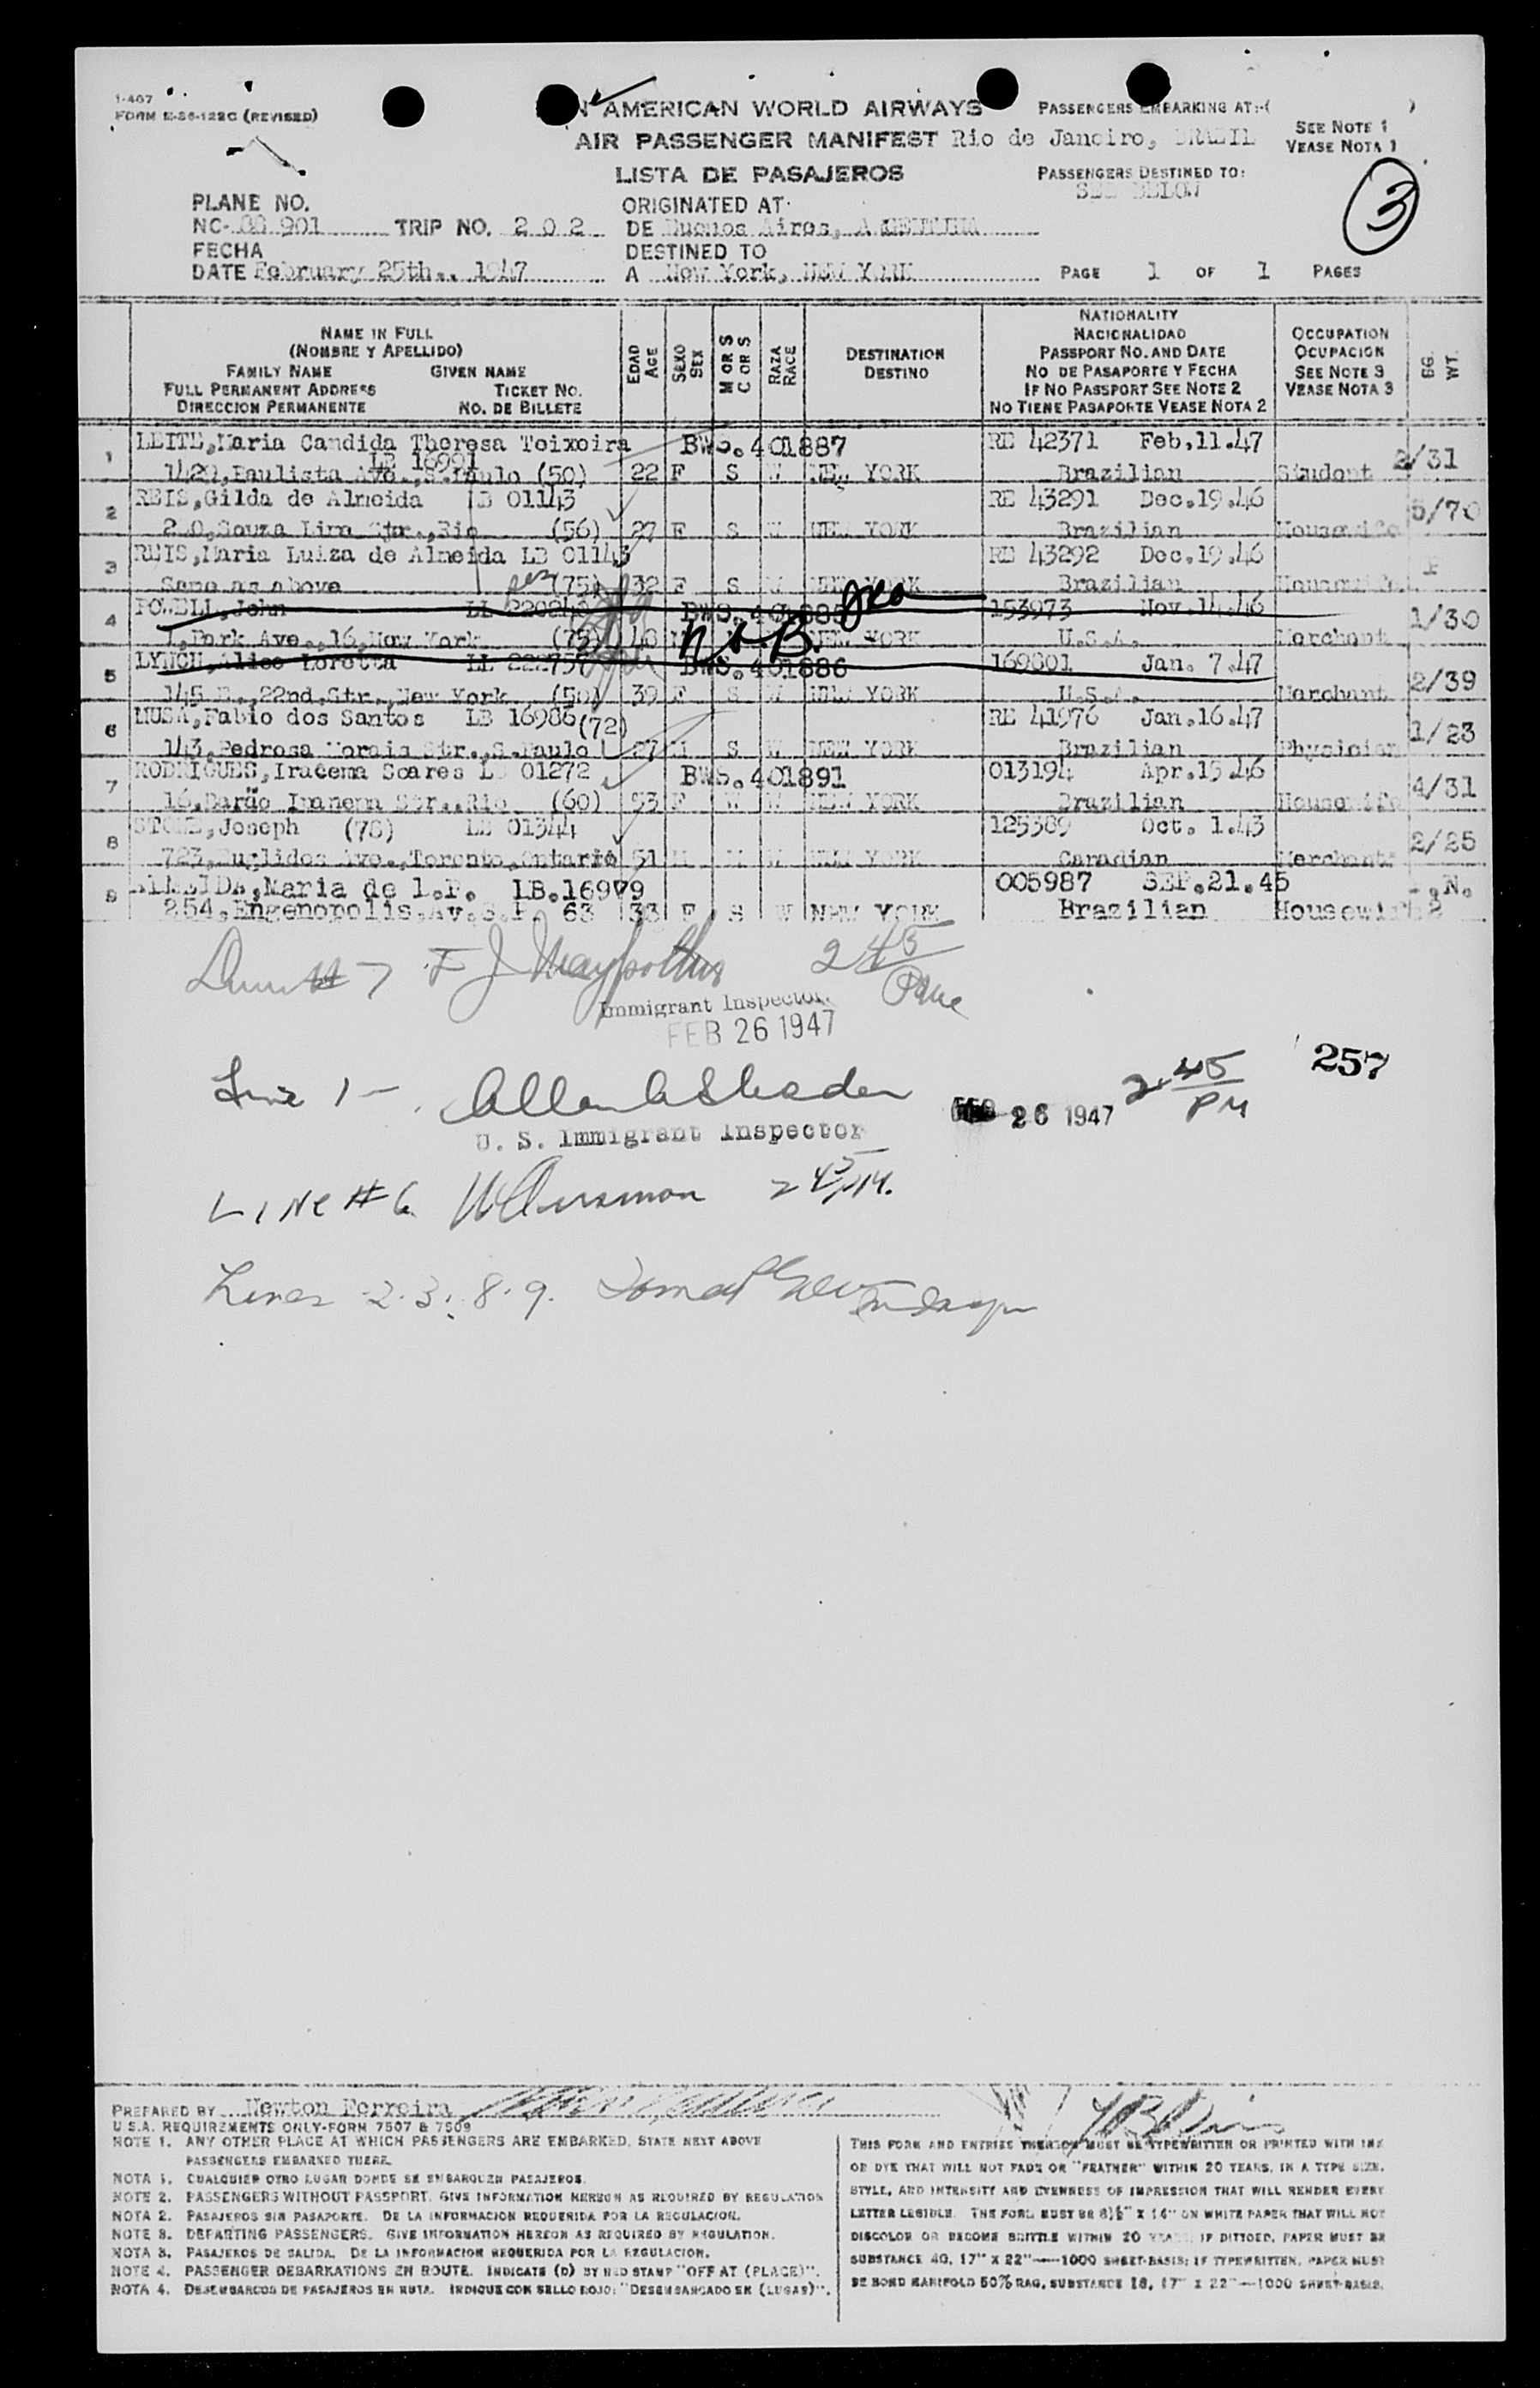 1-407
FORM E-86-122C (REVISED)
N AMERICAN WORLD AIRWAYS
AIR PASSENGER MANIFEST
LISTA DE PASAJEROS
PASSENGERS EMBARKING AT:-( )
Rio de Janeiro, BRAZIL
SEE NOTE 1
VEASE NOTA 1
PASSENGERS DESTINED TO:
SEE BELOW
3
PLANE NO.
NC- 88 901 TRIP NO. 2 0 2
FECHA
DATE February 25th., 1947
ORIGINATED AT
DE Buenos Aires, ARGENTINA
DESTINED TO
A New York, NEW YORK
PAGE 1 OF 1 PAGES
NAME IN FULL
(NOMBRE Y APELLIDO)
FAMILY NAME GIVEN NAME
FULL PERMANENT ADDRESS TICKET NO.
DIRECCION PERMANENTE NO. DE BILLETE
EDAD
AGE
SEXO
SEX
M OR S
C OR S
RAZA
RACE
DESTINATION
DESTINO
NATIONALITY
NACIONALIDAD
PASSPORT NO. AND DATE
NO DE PASAPORTE Y FECHA
IF NO PASSPORT SEE NOTE 2
NO TIENE PASAPORTE VEASE NOTA 2
OCCUPATION
OCUPACION
SEE NOTE 3
VEASE NOTA 3
BG.
WT.
1 LEITE, Maria Candida Theresa Teixeira BWS.401887 RE 42371 Feb.11.47
LB 16991
1420, Paulista Ave., S.Paulo (50) 22 F S W NEW YORK Brazilian Student 2/31
2 REIS, Gilda de Almeida LB 01143 RE 43291 Dec.19.46
Souza Lima Str., Rio (56) 27 F S W NEW YORK Brazilian Housewife 5/70
3 REIS, Maria Luiza de Almeida LB 01143 RE 43292 Dec.19.46
Same as above (75) 32 F S W NEW YORK Brazilian Housewife
4 POWELL, John LL 220248 153973 Nov.14.46
1, Park Ave., 16, New York (75) N.O.B. NEW YORK U.S.A. Merchant 1/30
5 LYNCH, Alice Loretta LL 222757 BWS.401886 169801 Jan. 7.47
145 E., 22nd.Str., New York (50) 39 F S W NEW YORK U.S.A. Merchant 2/39
6 MUSA, Fabio dos Santos LB 16986 (72) RE 41976 Jan.16.47
143, Pedrosa Morais Str., S.Paulo 27 M S W NEW YORK Brazilian Physician 1/23
7 RODRIGUES, Iracema Soares LB 01272 BWS.401891 013194 Apr.15.46
16, Barão Ipanema Str., Rio (60) 53 F W W NEW YORK Brazilian Housewife 4/31
8 STONE, Joseph (78) LB 01344 125389 Oct. 1.43
723, Euglides Ave., Toronto, Ontario 51 M M W NEW YORK Canadian Merchant 2/25
9 ALMEIDA, Maria de L.P. LB.16979 005987 SEP.21.45
254, Engenopolis.Av.S.P. 63 33 F S W NEW YORK Brazilian Housewife
7 2 45
Immigrant Inspector
FEB 26 1947
Line 1 -
U. S. Immigrant Inspector
26 1947
2 45
PM
257
LINE # 6 2 45 PM.
Lines 2. 3. 8. 9.
PREPARED BY Newton Ferreira
U.S.A. REQUIREMENTS ONLY-FORM 7507 & 7509
NOTE 1. ANY OTHER PLACE AT WHICH PASSENGERS ARE EMBARKED, STATE NEXT ABOVE
PASSENGERS EMBARKED THERE.
NOTA 1. CUALQUIER OTRO LUGAR DONDE SE EMBARQUEN PASAJEROS.
NOTE 2. PASSENGERS WITHOUT PASSPORT. GIVE INFORMATION HEREON AS REQUIRED BY REGULATION
NOTA 2. PASAJEROS SIN PASAPORTE. DE LA INFORMACION REQUERIDA POR LA REGULACION.
NOTE 3. DEPARTING PASSENGERS. GIVE INFORMATION HEREON AS REQUIRED BY REGULATION.
NOTA 3. PASAJEROS DE SALIDA. DE LA INFORMACION REQUERIDA POR LA REGULACION.
NOTE 4. PASSENGER DEBARKATIONS EN ROUTE. INDICATE (D) BY RED STAMP "OFF AT (PLACE)".
NOTA 4. DESEMBARCOS DE PASAJEROS EN RUTA. INDIQUE CON SELLO ROJO: "DESEMBARCADO EN (LUGAR)".
THIS FORM AND ENTRIES THEREON MUST BE TYPEWRITTEN OR PRINTED WITH INK
OR DYE THAT WILL NOT FADE OR "FEATHER" WITHIN 20 YEARS, IN A TYPE SIZE,
STYLE, AND INTENSITY AND EVENNESS OF IMPRESSION THAT WILL RENDER EVERY
LETTER LEGIBLE. THE FORM MUST BE 8½" X 14" ON WHITE PAPER THAT WILL NOT
DISCOLOR OR BECOME BRITTLE WITHIN 20 YEARS; IF DITTOED, PAPER MUST BE
SUBSTANCE 40, 17" X 22"—1000 SHEET-BASIS; IF TYPEWRITTEN, PAPER MUST
BE BOND MANIFOLD 50% RAG, SUBSTANCE 18, 17" X 22"—1000 SHEET-BASIS.